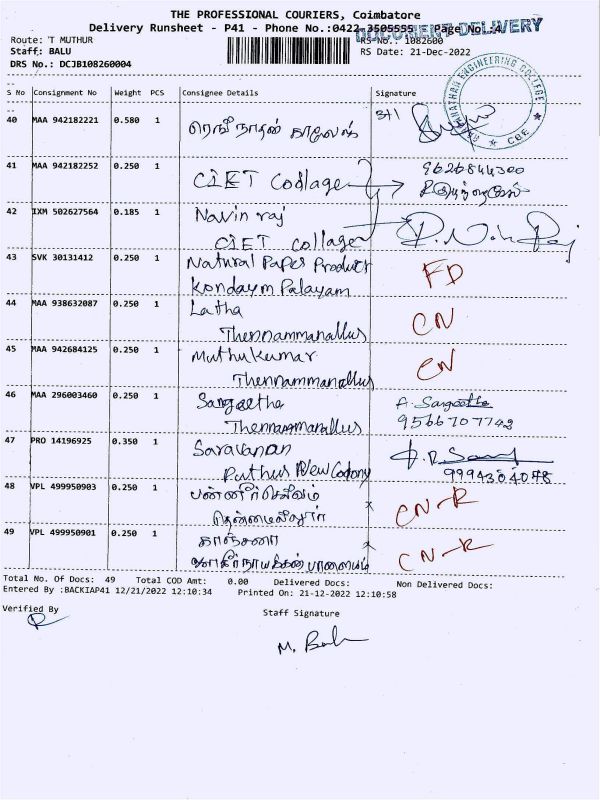 THE PROFESSIONAL COURIERS, Coimbatore
Delivery Runsheet - P41 - Phone No.:0422-3505555 Page No.:4
DOCUMENT DELIVERY
Route: 'T MUTHUR
RS No.: 1082600
Staff: BALU
RS Date: 21-Dec-2022
DRS No.: DCJB108260004
S No Consignment No Weight PCS Consignee Details Signature
40 MAA 942182221 0.580 1
ENGINEERING COLLEGE
CBE
41 MAA 942182252 0.250 1 CIET Collage 9626844300
42 IXM 502627564 0.185 1 Navin raj
CIET collage
43 SVK 30131412 0.250 1 Natural Paper Product FD
Kondaym Palayam
44 MAA 938632087 0.250 1 Latha CN
Thennammanallus
45 MAA 942684125 0.250 1 Muthukumar CN
Thennammanallus
46 MAA 296003460 0.250 1 Sangeetha A. Sangeetha
Thennammanallus 9566707742
47 PRO 14196925 0.350 1 Saravanan
Puthus New Colony 9994304078
48 VPL 499950903 0.250 1 பன்னீர்செல்வம் CN-R
49 VPL 499950901 0.250 1 காஞ்சனா CN-R
Total No. Of Docs: 49 Total COD Amt: 0.00 Delivered Docs: Non Delivered Docs:
Entered By :BACKIAP41 12/21/2022 12:10:34 Printed On: 21-12-2022 12:10:58
Verified By
Staff Signature